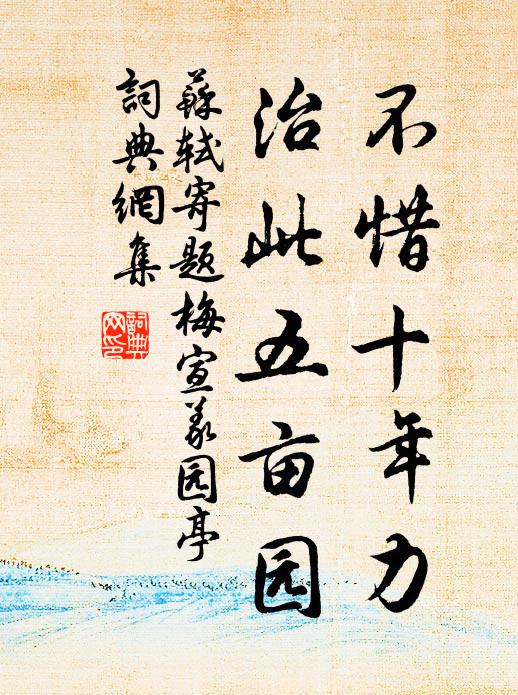 不惜十年力
治此五亩园
蘇軾寄题梅宣义园亭
詞典網集
詞典网印